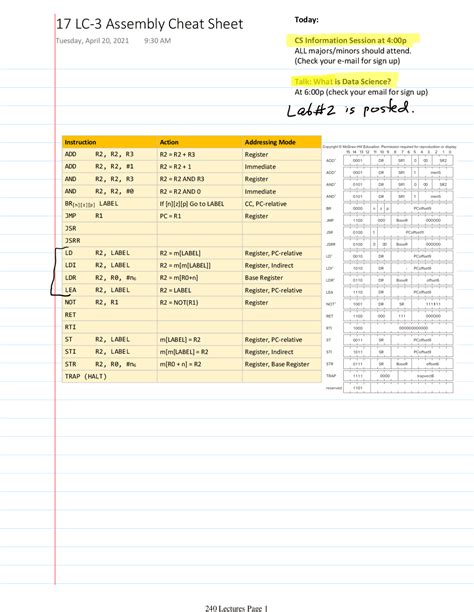 17 LC-3 Assembly Cheat Sheet
Tuesday, April 20, 2021 9:30 AM
Today:
CS Information Session at 4:00p
ALL majors/minors should attend.
(Check your e-mail for sign up)
Talk: What is Data Science?
At 6:00p (check your email for sign up)
Lab#2 is posted.
Instruction Action Addressing Mode
ADD R2, R2, R3 R2 = R2 + R3 Register
ADD R2, R2, #1 R2 = R2 + 1 Immediate
AND R2, R2, R3 R2 = R2 AND R3 Register
AND R2, R2, #0 R2 = R2 AND 0 Immediate
BR[n][z][p] LABEL If [n][z][p] Go to LABEL CC, PC-relative
JMP R1 PC = R1 Register
JSR
JSRR
LD R2, LABEL R2 = m[LABEL] Register, PC-relative
LDI R2, LABEL R2 = m[m[LABEL]] Register, Indirect
LDR R2, R0, #n6 R2 = m[R0+n] Base Register
LEA R2, LABEL R2 = LABEL Register, PC-relative
NOT R2, R1 R2 = NOT(R1) Register
RET
RTI
ST R2, LABEL m[LABEL] = R2 Register, PC-relative
STI R2, LABEL m[m[LABEL] = R2 Register, Indirect
STR R2, R0, #n6 m[R0 + n] = R2 Register, Base Register
TRAP (HALT)
Copyright © McGraw-Hill Education. Permission required for reproduction or display.
15 14 13 12 11 10 9 8 7 6 5 4 3 2 1 0
ADD+ 0001 DR SR1 0 00 SR2
ADD+ 0001 DR SR1 1 imm5
AND+ 0101 DR SR1 0 00 SR2
AND+ 0101 DR SR1 1 imm5
BR 0000 n z p PCoffset9
JMP 1100 000 BaseR 000000
JSR 0100 1 PCoffset11
JSRR 0100 0 00 BaseR 000000
LD+ 0010 DR PCoffset9
LDI+ 1010 DR PCoffset9
LDR+ 0110 DR BaseR offset6
LEA 1110 DR PCoffset9
NOT+ 1001 DR SR 111111
RET 1100 000 111 000000
RTI 1000 000000000000
ST 0011 SR PCoffset9
STI 1011 SR PCoffset9
STR 0111 SR BaseR offset6
TRAP 1111 0000 trapvect8
reserved 1101
240 Lectures Page 1